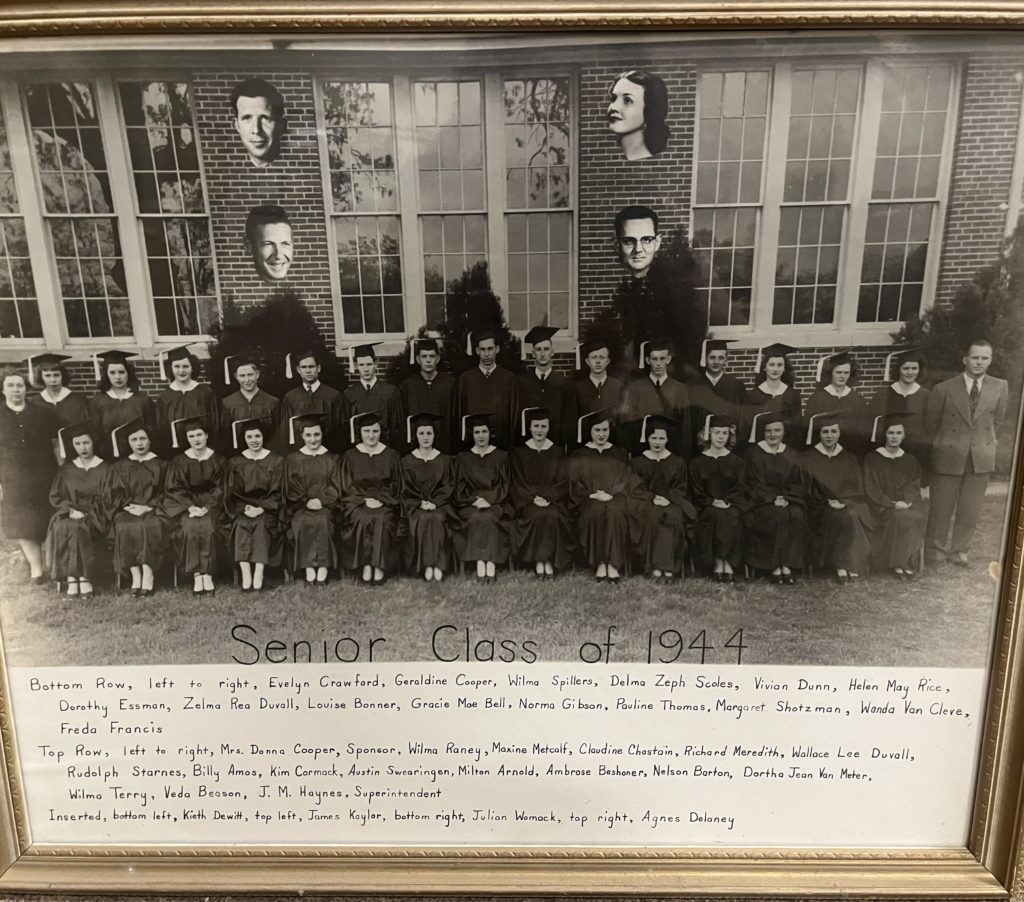 Senior Class of 1944
Bottom Row, left to right, Evelyn Crawford, Geraldine Cooper, Wilma Spillers, Delma Zeph Scoles, Vivian Dunn, Helen May Rice,
Dorothy Essman, Zelma Rea Duvall, Louise Bonner, Gracie Mae Bell, Norma Gibson, Pauline Thomas, Margaret Shotzman, Wanda Van Cleve,
Freda Francis
Top Row, left to right, Mrs. Donna Cooper, Sponsor, Wilma Raney, Maxine Metcalf, Claudine Chastain, Richard Meredith, Wallace Lee Duvall,
Rudolph Starnes, Billy Amos, Kim Cormack, Austin Swearingen, Milton Arnold, Ambrose Beshoner, Nelson Barton, Dortha Jean Van Meter,
Wilma Terry, Veda Beason, J. M. Haynes, Superintendent
Inserted, bottom left, Kieth Dewitt, top left, James Kaylor, bottom right, Julian Womack, top right, Agnes Delaney